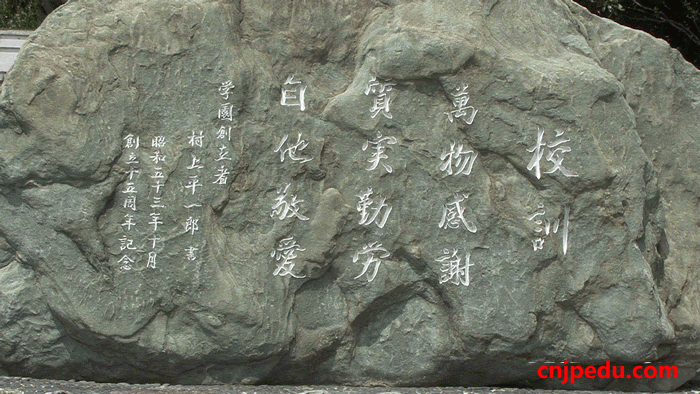 校訓
萬物感謝
質実勤労
自他敬愛
学園創立者
村上平一郎書
昭和五十三年十月
創立十五周年記念
cnjpedu.com